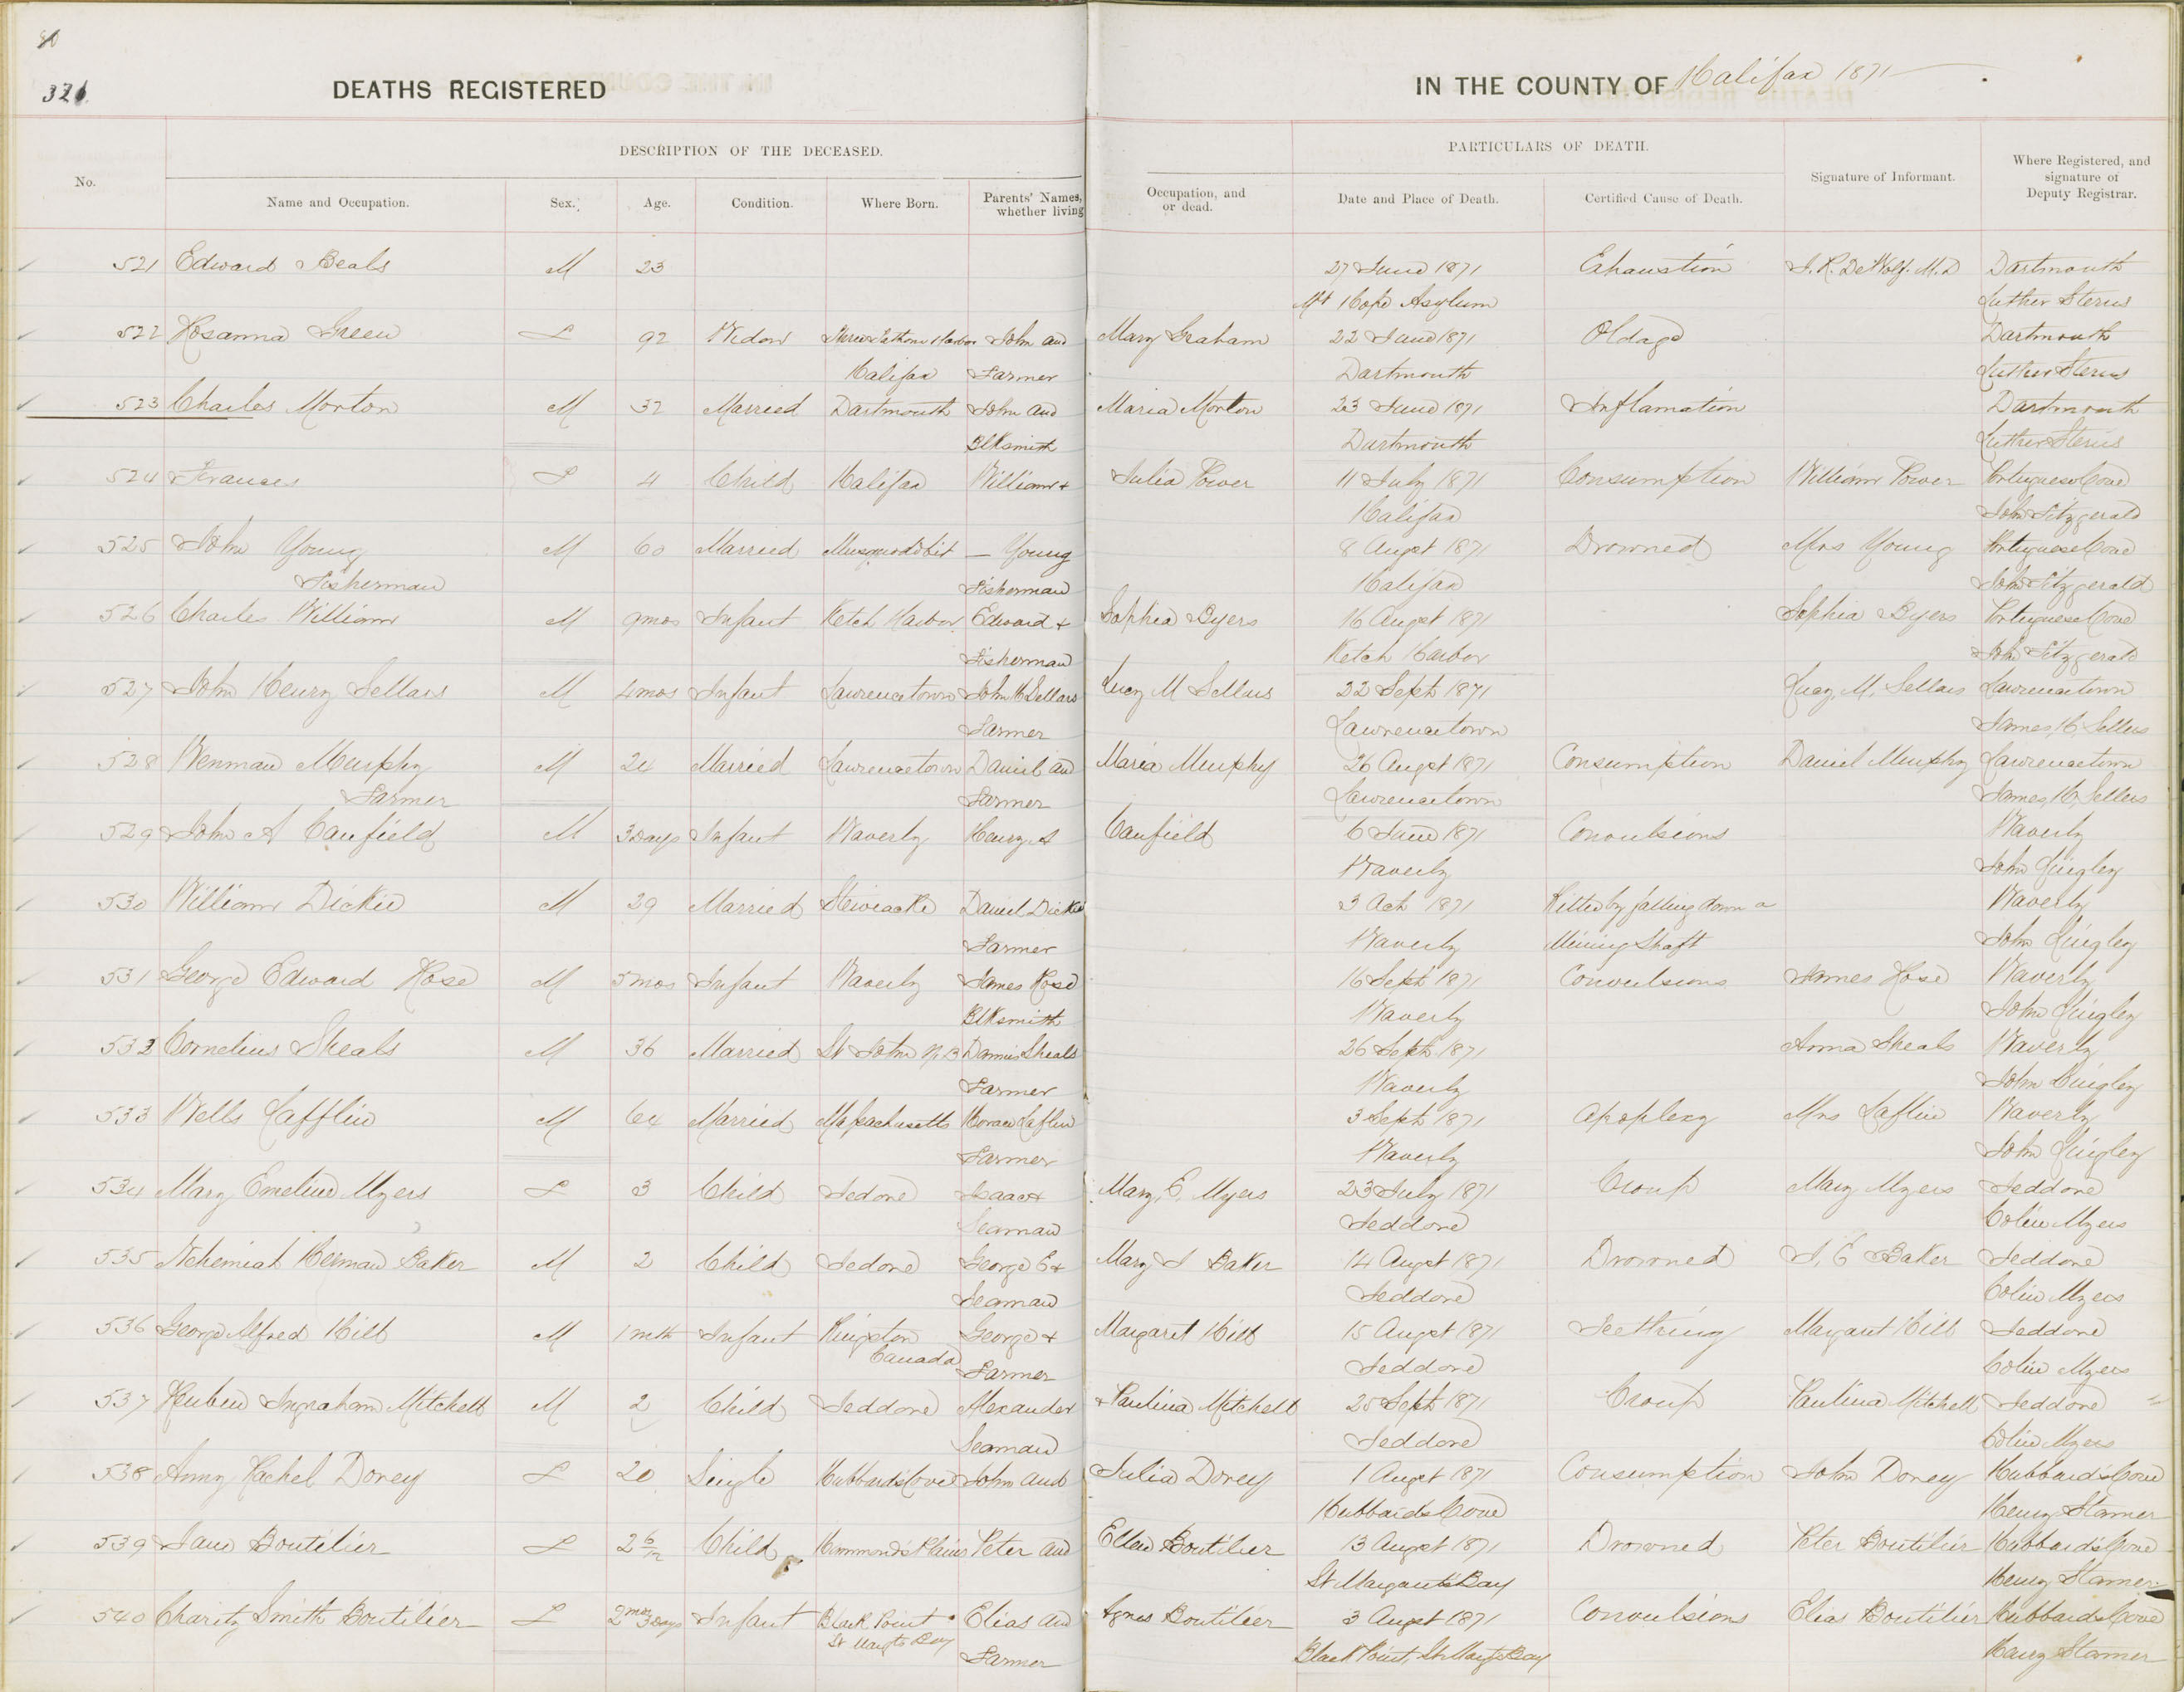 326
DEATHS REGISTERED IN THE COUNTY OF Halifax 1871
DESCRIPTION OF THE DECEASED. PARTICULARS OF DEATH.
No. Name and Occupation. Sex. Age. Condition. Where Born. Parents' Names, Occupation, and whether living or dead. Date and Place of Death. Certified Cause of Death. Signature of Informant. Where Registered, and signature of Deputy Registrar.
521 Edward Beals M 23 27 June 1871 Exhaustion J. R. DeWolf. M.D Dartmouth
Mt Hope Asylum Luther Sterns
522 Rosanna Green F 92 Widow Three Fathom Harbor John and Mary Graham 22 June 1871 Old age Dartmouth
Halifax Farmer Dartmouth Luther Sterns
523 Charles Morton M 32 Married Dartmouth John and Maria Morton 23 June 1871 Inflamation Dartmouth
Blksmith Dartmouth Luther Sterns
524 Frances F 4 Child Halifax William + Julia Power 11 July 1871 Consumption William Power Portuguese Cove
Halifax John Fitzgerald
525 John Young M 60 Married Musquodobit — Young 8 Augst 1871 Drowned Mrs Young Portuguese Cove
Fisherman Fisherman Halifax John Fitzgerald
526 Charles William M 9mos Infant Ketch Harbor Edward + Sophia Byers 16 Augst 1871 Sophia Byers Portuguese Cove
Fisherman Ketch Harbor John Fitzgerald
527 John Henry Sellars M 4mos Infant Lawrencetown John H Sellars Lucy M Sellars 22 Sept 1871 Lucy. M. Sellars Lawrencetown
Farmer Lawrencetown James H Sellers
528 Wenman Murphy M 24 Married Lawrencetown Daniel and Maria Murphy 26 Augst 1871 Consumption Daniel Murphy Lawrencetown
Farmer Farmer Lawrencetown James H Sellers
529 John A Canfield M 3 Days Infant Waverly Henry A Canfield 6 June 1871 Convulsions Waverly
Waverly John Lingley
530 William Dickie M 29 Married Stewiacke Daniel Dickie 3 Oct 1871 Killed by falling down a Waverly
Farmer Waverly Mining Shaft John Lingley
531 George Edward Rose M 5mos Infant Waverly James Rose 16 Sept 1871 Convulsions James Rose Waverly
Blksmith Waverly John Lingley
532 Cornelius Sheals M 36 Married St John N.B Dennis Sheals 26 Sept 1871 Anna Sheals Waverly
Farmer Waverly John Lingley
533 Wells Lafflin M 64 Married Massachusetts Horace Laflin 3 Sept 1871 Apoplexy Mrs Laflin Waverly
Farmer Waverly John Lingley
534 Mary Emeline Myers F 3 Child Jedore Isaac + Mary, E. Myers 23 July 1871 Croup Mary Myers Jeddore
Seaman Jeddore Colin Myers
535 Nehemiah Herman Baker M 2 Child Jedore George E + Mary J Baker 14 Augst 1871 Drowned J. E Baker Jeddore
Seaman Jeddore Colin Myers
536 George Alfred Hill M 1 mth Infant Kingston George + Margaret Hill 15 Augst 1871 Teething Margaret Hill Jeddore
Canada Farmer Jeddore Colin Myers
537 Reuben Ingraham Mitchell M 2 Child Jeddore Alexander + Paulina Mitchell 25 Sept 1871 Croup Paulina Mitchell Jeddore
Seaman Jeddore Colin Myers
538 Anny Rachel Dorey F 20 Single Hubbard's Cove John and Julia Dorey 1 Augst 1871 Consumption John Dorey Hubbard's Cove
Hubbards Cove Henry Stamer
539 Jane Boutilier F 2 6/12 Child Hammond's Plains Peter and Ellen Boutilier 13 Augst 1871 Drowned Peter Boutilier Hubbards Cove
St Margaret's Bay Henry Stamer
540 Charity Smith Boutilier F 2 mos 3 Days Infant Black Point Elias and Agnes Boutilier 3 Augst 1871 Convulsions Elias Boutilier Hubbards Cove
St Margts Bay Farmer Black Point, St Margts Bay Henry Stamer